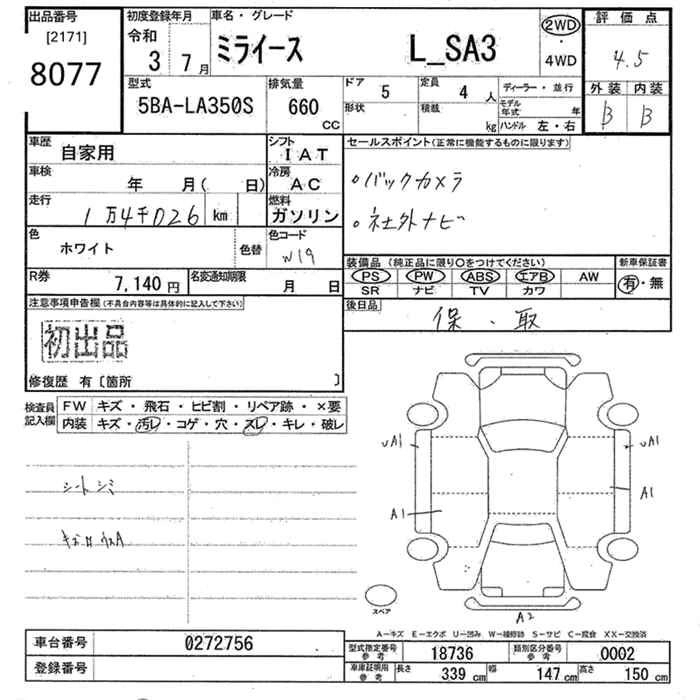 出品番号 初度登録年月 車名・グレード 2WD 評価点
[2171] 令和 ・
8077 3 7月 ミライース L_SA3 4WD 4.5
型式 排気量 ドア 5 定員 4人 ディーラー・並行 外装 内装
5BA-LA350S 660 形状 積載 モデル年式 年 B B
CC kg ハンドル 左・右
車歴 自家用 シフト IAT セールスポイント(正常に機能するものに限ります)
車検 年 月( 日) 冷房 AC ・バックカメラ
走行 1万4千026 km 燃料 ガソリン ・社外ナビ
色 ホワイト 色替 色コード W19
装備品(純正品に限り○をつけてください) 新車保証書
PS PW ABS エアB AW 有・無
SR ナビ TV カワ
R券 7,140円 名変通知期限 月 日
後日品 保・取
注意事項申告欄(不具合内容等は具体的に記入して下さい)
初出品
修復歴 有〔箇所 〕
検査員記入欄 FW キズ・飛石・ヒビ割・リペア跡・×要
内装 キズ・汚レ・コゲ・穴・スレ・キレ・破レ
シートシミ
UA1 UA1
A1 A1
A2
スペア
A-キズ E-エクボ U-凹み W-補修跡 S-サビ C-腐食 XX-交換済
車台番号 0272756
登録番号
型式指定番号 参考 18736 類別区分番号 参考 0002
車庫証明用 参考 長さ 339 cm 幅 147 cm 高さ 150 cm